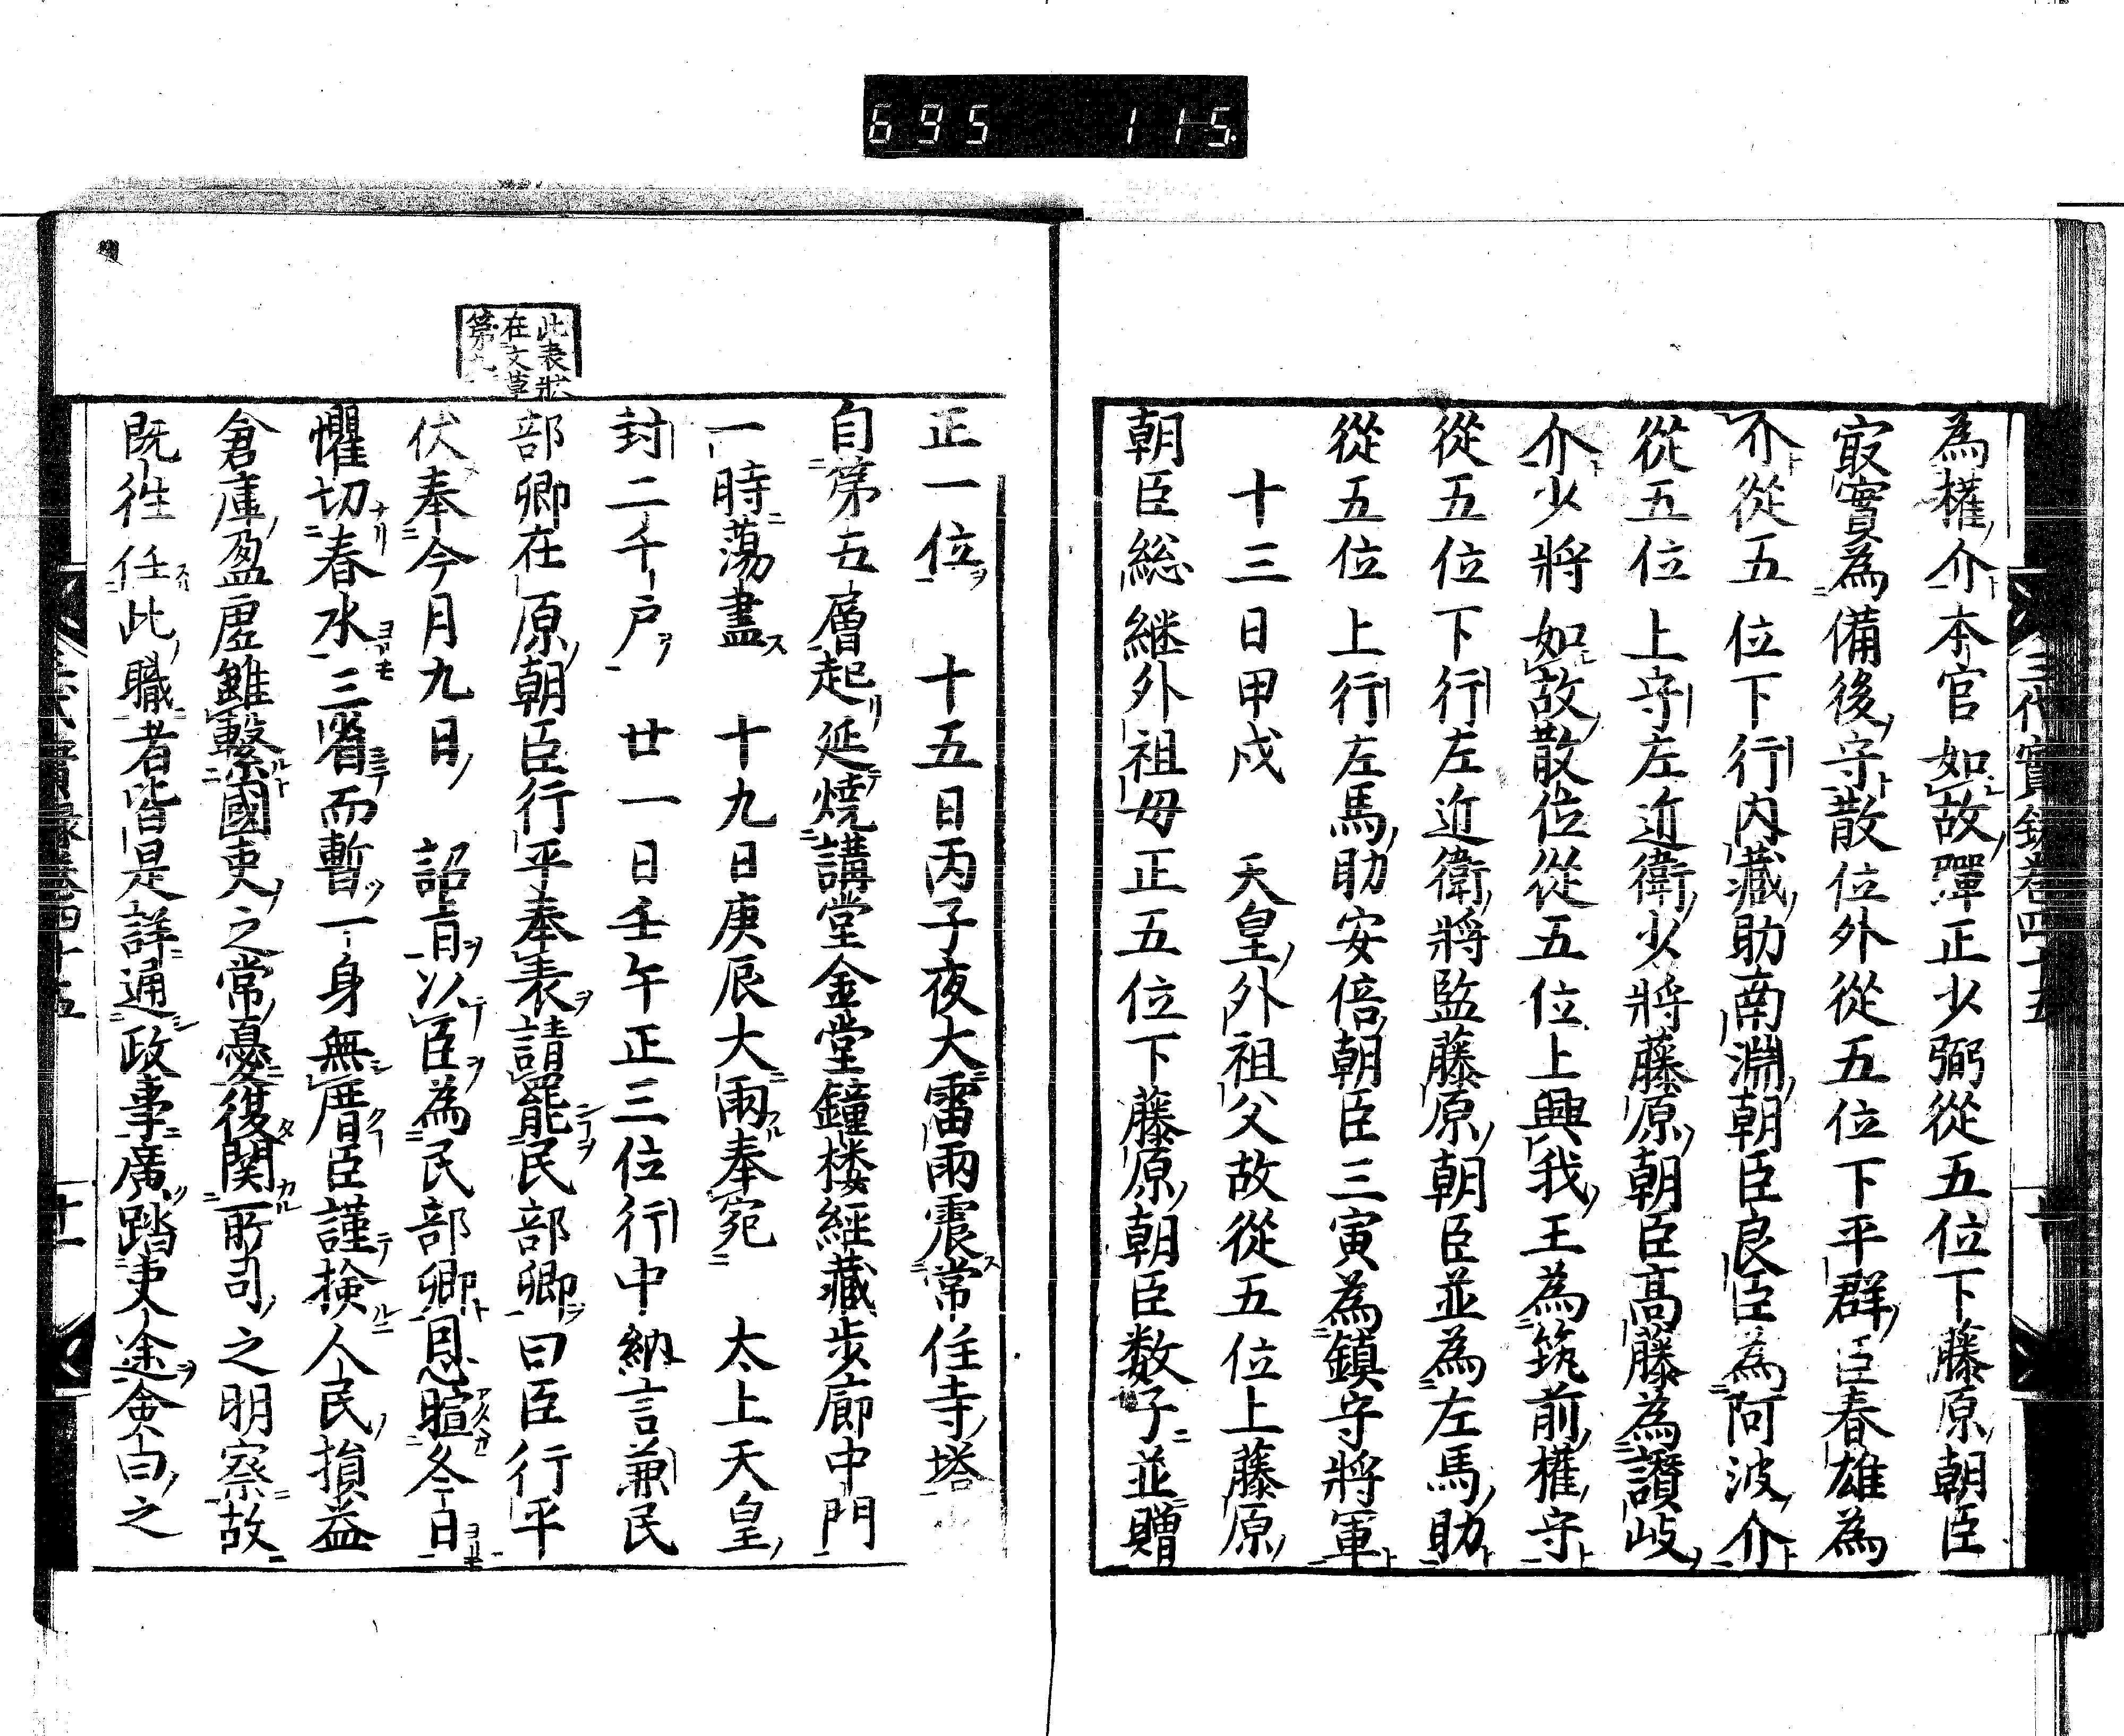 695 115
三代實録卷四十五
為權介本官如故彈正少弼從五位下藤原朝臣
㝡實為備後守散位外從五位下平群臣春雄為
介從五位下行内藏助南淵朝臣良臣為阿波介
從五位上守左近衛少將藤原朝臣高藤為讃岐
介少將如故散位從五位上興我王為筑前權守
從五位下行左近衛將監藤原朝臣並為左馬助
從五位上行左馬助安倍朝臣三寅為鎮守將軍
十三日甲戌 天皇外祖父故從五位上藤原
朝臣総継外祖母正五位下藤原朝臣数子並贈
正一位 十五日丙子夜大雷雨震常住寺塔
自第五層起延燒講堂金堂鐘楼經藏歩廊中門
一時蕩盡 十九日庚辰大雨奉宛 太上天皇
封二千戸 廿一日壬午正三位行中納言兼民
部卿在原朝臣行平奉表請罷民部卿曰臣行平
伏奉今月九日 詔旨以臣為民部卿恩暄冬日
懼切春水三省而暫一身無厝臣謹検人民損益
倉庫盈虚雖繫國吏之常憂復関所司之明察故
既往任此職者皆是詳通政事廣踏吏途僉曰之
此表狀
在文草
第九
三代實録卷四十五 十一